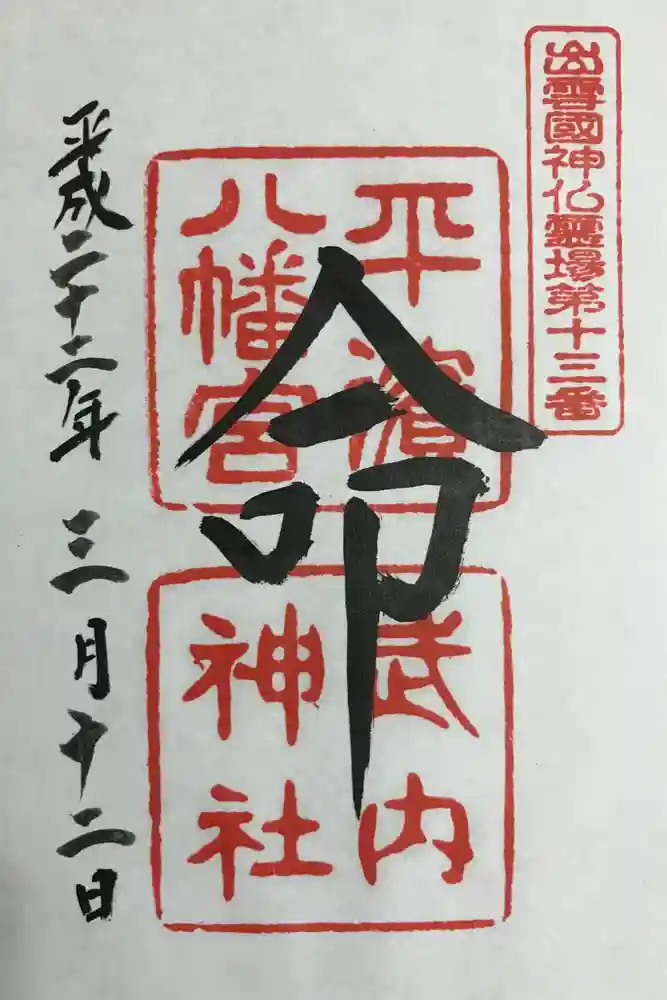 出雲國神仏霊場第十三番
平濱
八幡宮
命
武内
神社
平成二十二年三月十二日